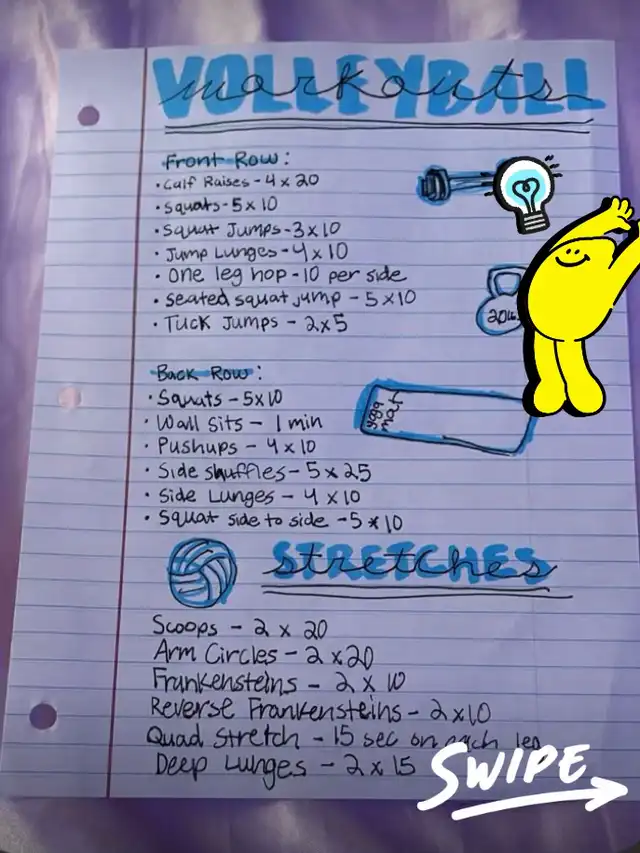 VOLLEYBALL
workouts
Front Row:
• Calf Raises - 4 x 20
• Squats - 5 x 10
• Squat Jumps - 3 x 10
• Jump Lunges - 4 x 10
• One leg hop - 10 per side
• Seated squat jump - 5 x 10
• Tuck Jumps - 2 x 5
20lb
Back Row:
• Squats - 5x10
• Wall Sits - 1 min
• Pushups - 4 x 10
• Side shuffles - 5 x 25
• Side Lunges - 4 x 10
• Squat side to side - 5 x 10
yoga
mat
STRETCHES
stretches
Scoops - 2 x 20
Arm Circles - 2 x 20
Frankensteins - 2 x 10
Reverse Frankensteins - 2 x 10
Quad Stretch - 15 sec on each leg
Deep Lunges - 2 x 15
SWIPE